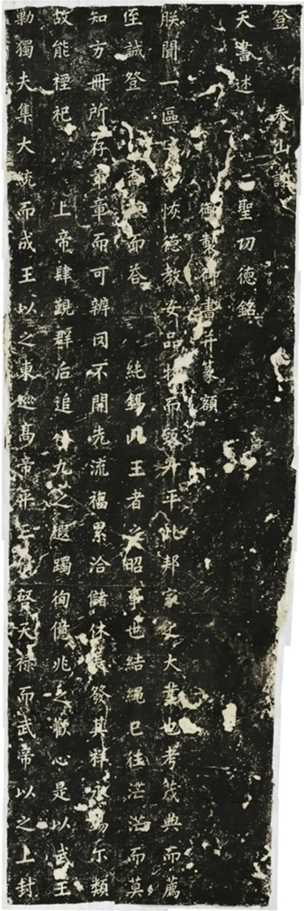 登 泰山謝
天書述 二聖功德銘
御製御書并篆額
朕聞一區恢德教安品物而致升平此邦家之大業也考茂典而薦
至誠登而荅 純錫此王者之昭事也結繩已往茫茫而莫
知方冊所存章章而可辨罔不開先流福累洽儲休長發其祥永錫尓類
故能禋祀 上帝肆覲群后追八九之遐躅徇億兆之歡心是以武王
勦獨夫集大統而成王以之東巡高帝平啓天祿而武帝以之上封